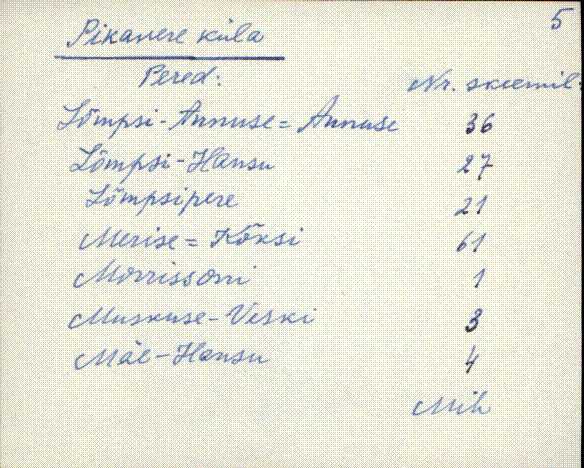 5
Pikavere küla
Pered: Nr. skeemil:
Lõmpsi-Annuse = Annuse 36
Lõmpsi-Hansu 27
Lõmpsipere 21
Merise = Kõksi 61
Morrissoni 1
Muskuse-Veski 3
Mäe-Hansu 4
Mih